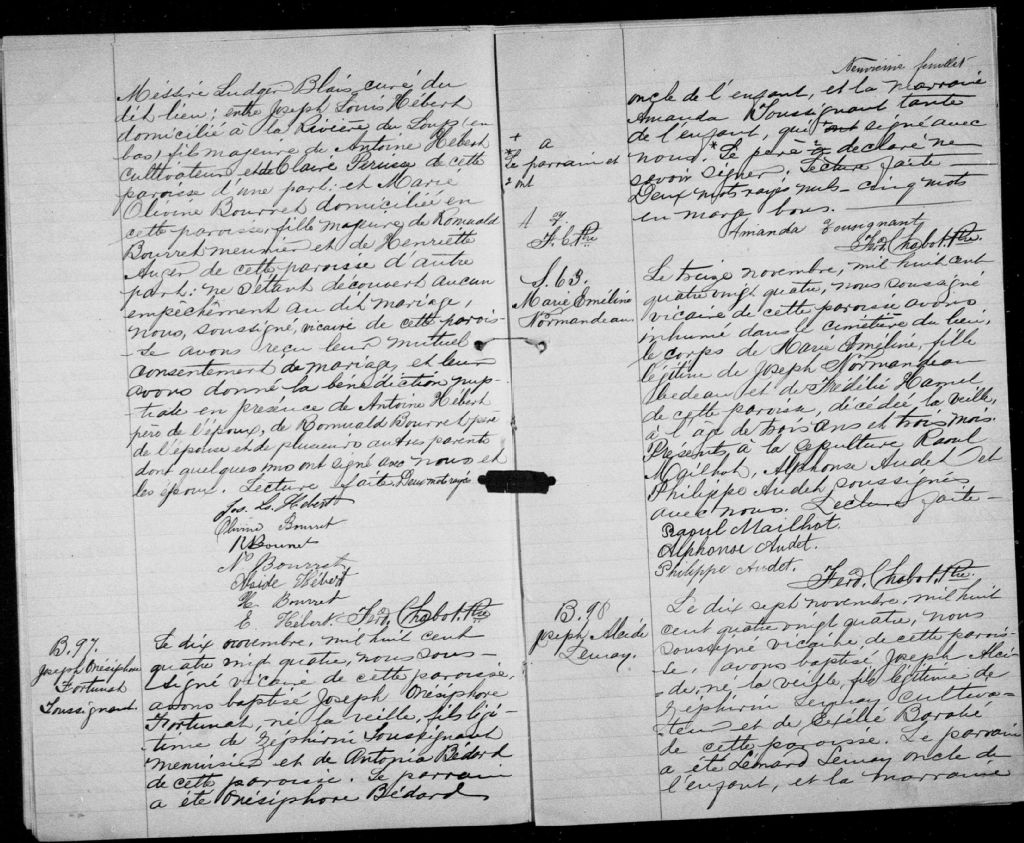 Messire Ludger Blais curé du
dit lieu; entre Joseph Louis Hébert
domicilié à la Rivière du Loup (en
bas) fils majeure de Antoine Hébert
cultivateur et de Claire Perusse de cette
paroisse d'une part: et Marie
Olivine Bourret domiciliée en
cette paroisse, fille majeure de Romuald
Bourret meunier et de Henriette
Auger de cette paroisse d'autre
part: ne s'étant découvert aucun
empêchement au dit mariage,
nous, soussigné, vicaire de cette parois-
-se avons reçu leur mutuel
consentement de mariage, et leur
avons donné la bénédiction nup-
-tiale en présence de Antoine Hébert
père de l'époux, de Romuald Bourret père
de l'épouse et de plusieurs autres parents
dont quelques uns ont signé avec nous et
les époux. Lecture faite. Deux mots rayés
Jos. Ls. Hébert
Olivine Bourret
R Bourret
N. Bourret
Hébert
H. Bourret
E. Hébert. Ferd. Chabot. Ptre
B. 97.
Joseph Onésiphore
Fortunat
Toussignant.
Le dix novembre, mil huit cent
quatre vingt quatre, nous sous-
-signé vicaire de cette paroisse,
avons baptisé Joseph Onésiphore
Fortunat, né la veille, fils légi-
-time de Zéphirin Toussignant
menuisier et de Antonia Bédard
de cette paroisse. Le parrain
a été Onésiphore Bédard
Neuvième feuillet
oncle de l'enfant, et la marraine
Amanda Toussignant tante
de l'enfant, qui ont signé avec
nous. * Le père a déclaré ne
savoir signer; Lecture faite
Deux mots rayés nuls - cinq mots
en marge bons.
+ a
* Le parrain et
2 ont
F. C. Ptre
Amanda Tousignant
Ferd. Chabot. Ptre.
S. 63.
Marie Eméline
Normandeau
Le treize novembre, mil huit cent
quatre vingt quatre, nous soussigné
vicaire de cette paroisse avons
inhumé dans le cimetière du lieu,
le corps de Marie Eméline, fille
légitime de Joseph Normandeau
bedeau et de Hamel
de cette paroisse, décédée la veille,
à l'âge de trois ans et trois mois.
Présents, à la sépulture Raoul
Mailhot, Alphonse Audet et
Philippe Audet, soussignés
avec nous. Lecture faite -
Raoul Mailhot
Alphonse Audet.
Philippe Audet.
Ferd. Chabot. Ptre.
B. 98
Joseph Alcide
Lemay.
Le dix sept novembre, mil huit
cent quatre vingt quatre, nous
soussigné vicaire de cette parois-
-se, avons baptisé Joseph Alci-
-de, né la veille, fils légitime de
Zéphirin Lemay cultiva-
-teur et de Exélie Barabé
de cette paroisse. Le parrain
a été Lemay oncle de
l'enfant, et la marraine